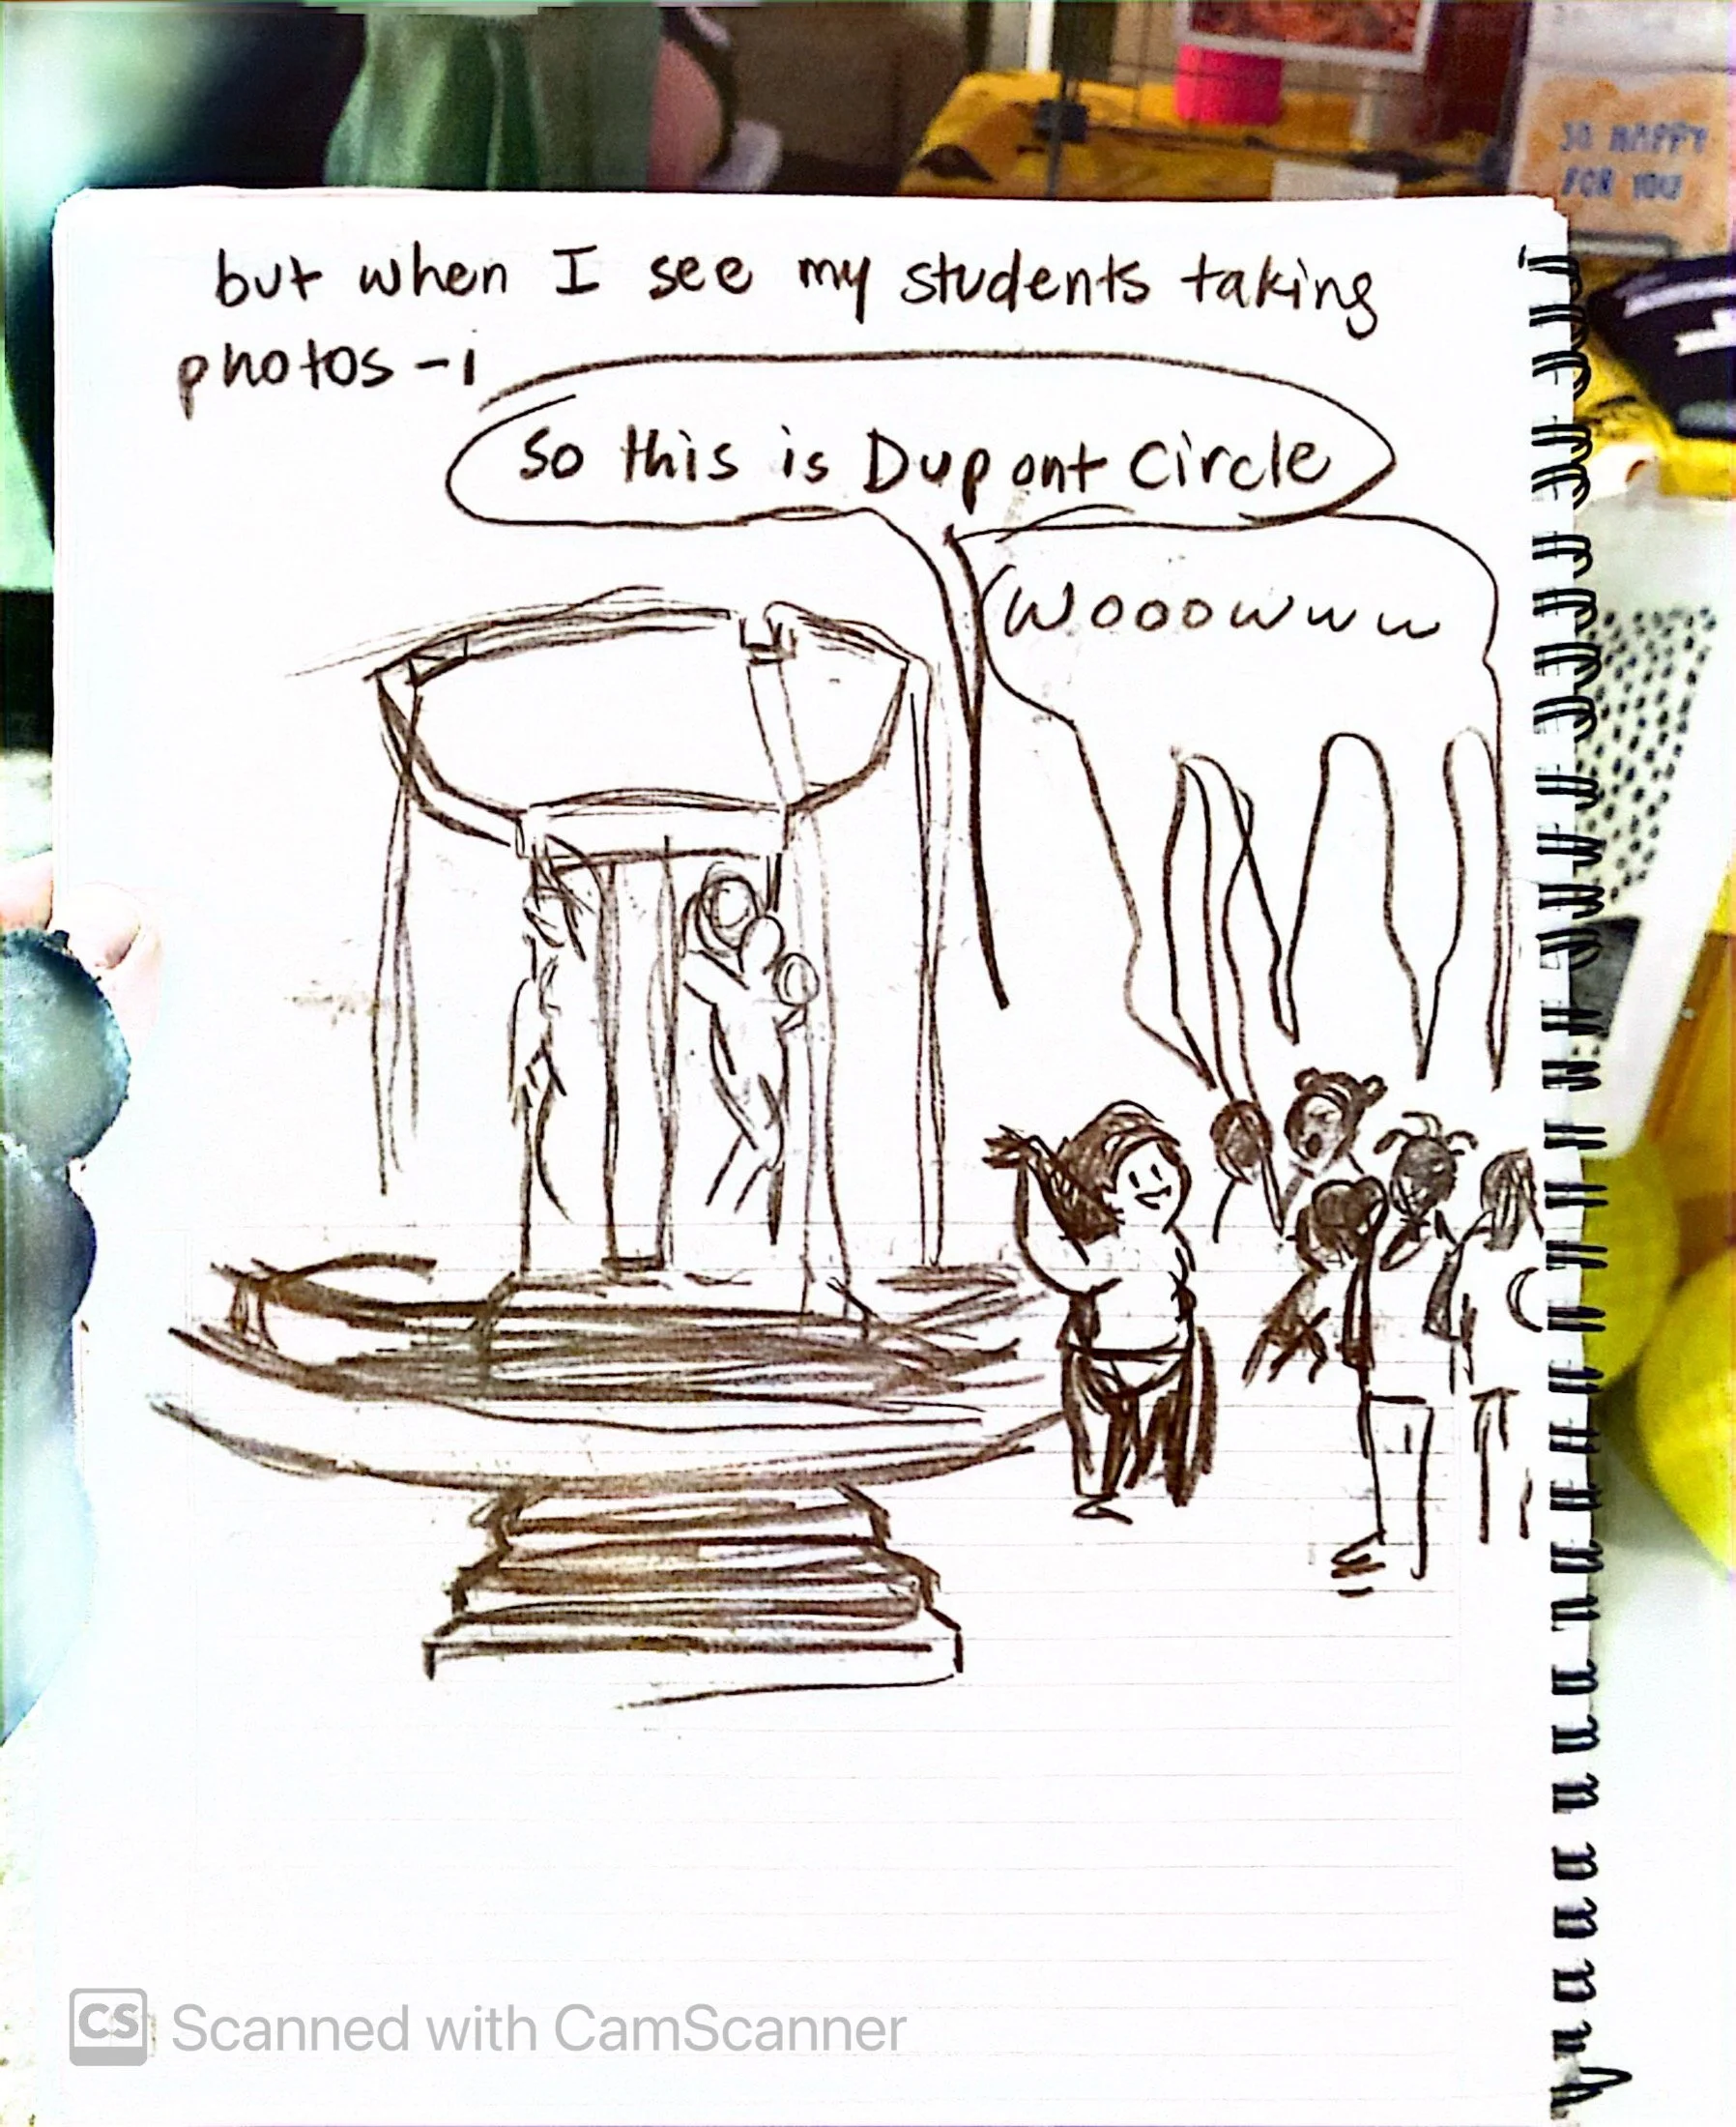 SO HAPPY
FOR YOU
but when I see my students taking
photos - i
So this is Dupont Circle
Wooowww
CS Scanned with CamScanner